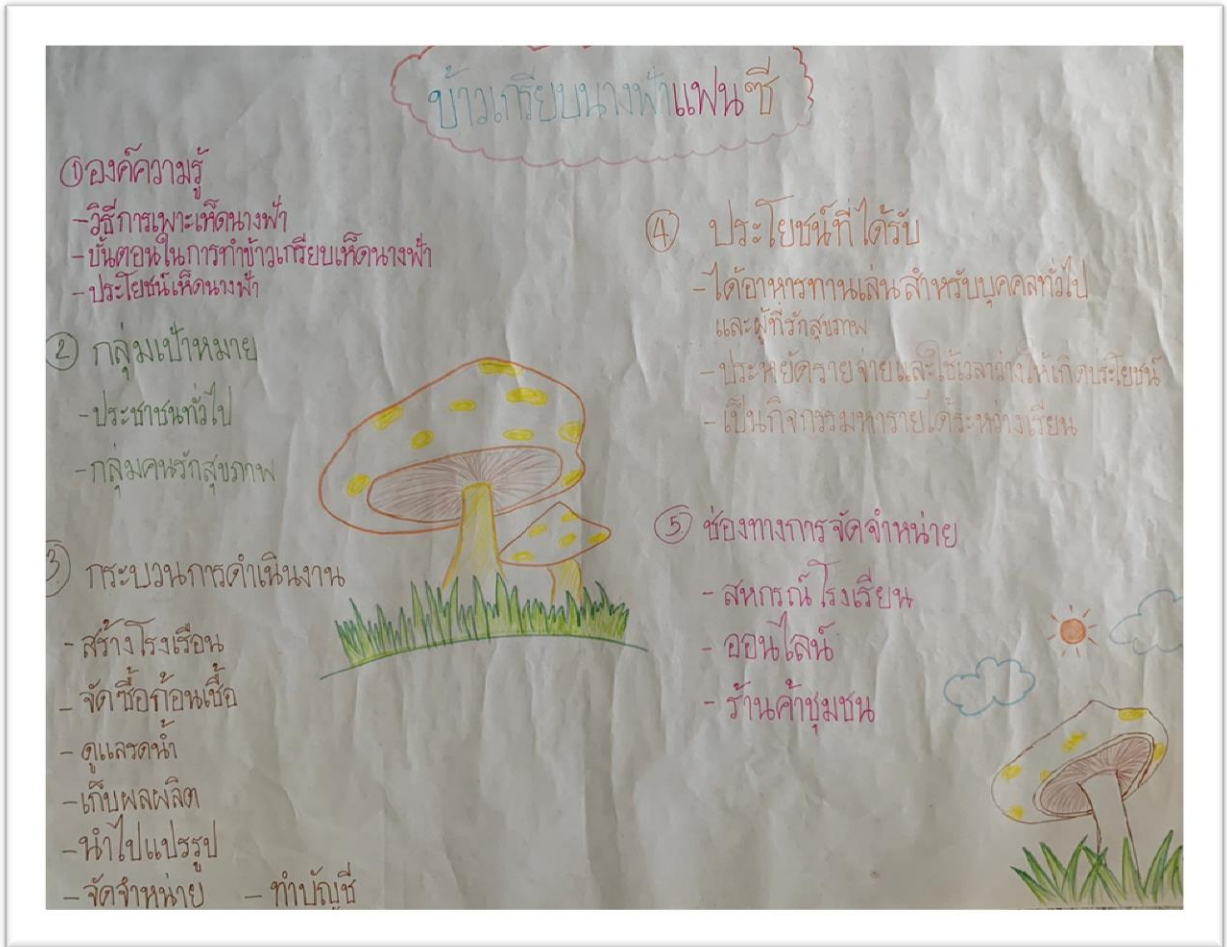 ข้าวเกรียบนางฟ้าแฟนซี
① องค์ความรู้
- วิธีการเพาะเห็ดนางฟ้า
- ขั้นตอนในการทำข้าวเกรียบเห็ดนางฟ้า
- ประโยชน์เห็ดนางฟ้า
② กลุ่มเป้าหมาย
- ประชาชนทั่วไป
- กลุ่มคนรักสุขภาพ
3 กระบวนการดำเนินงาน
- สร้างโรงเรือน
- จัดซื้อก้อนเชื้อ
- ดูแลรดน้ำ
- เก็บผลผลิต
- นำไปแปรรูป
- จัดจำหน่าย - ทำบัญชี
④ ประโยชน์ที่ได้รับ
- ได้อาหารทานเล่นสำหรับบุคคลทั่วไป
และผู้ที่รักสุขภาพ
- ประหยัดรายจ่ายและใช้เวลาว่างให้เกิดประโยชน์
- เป็นกิจกรรมหารายได้ระหว่างเรียน
⑤ ช่องทางการจัดจำหน่าย
- สหกรณ์โรงเรียน
- ออนไลน์
- ร้านค้าชุมชน